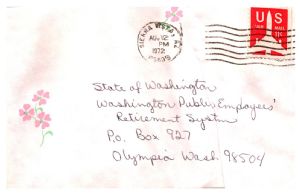 SIERRA VISTA, AZ
AUG 12
PM
1972
85635
US
AIR MAIL
11c
State of Washington
Washington Public Employees'
Retirement System
P.O. Box 927
Olympia Wash 98504